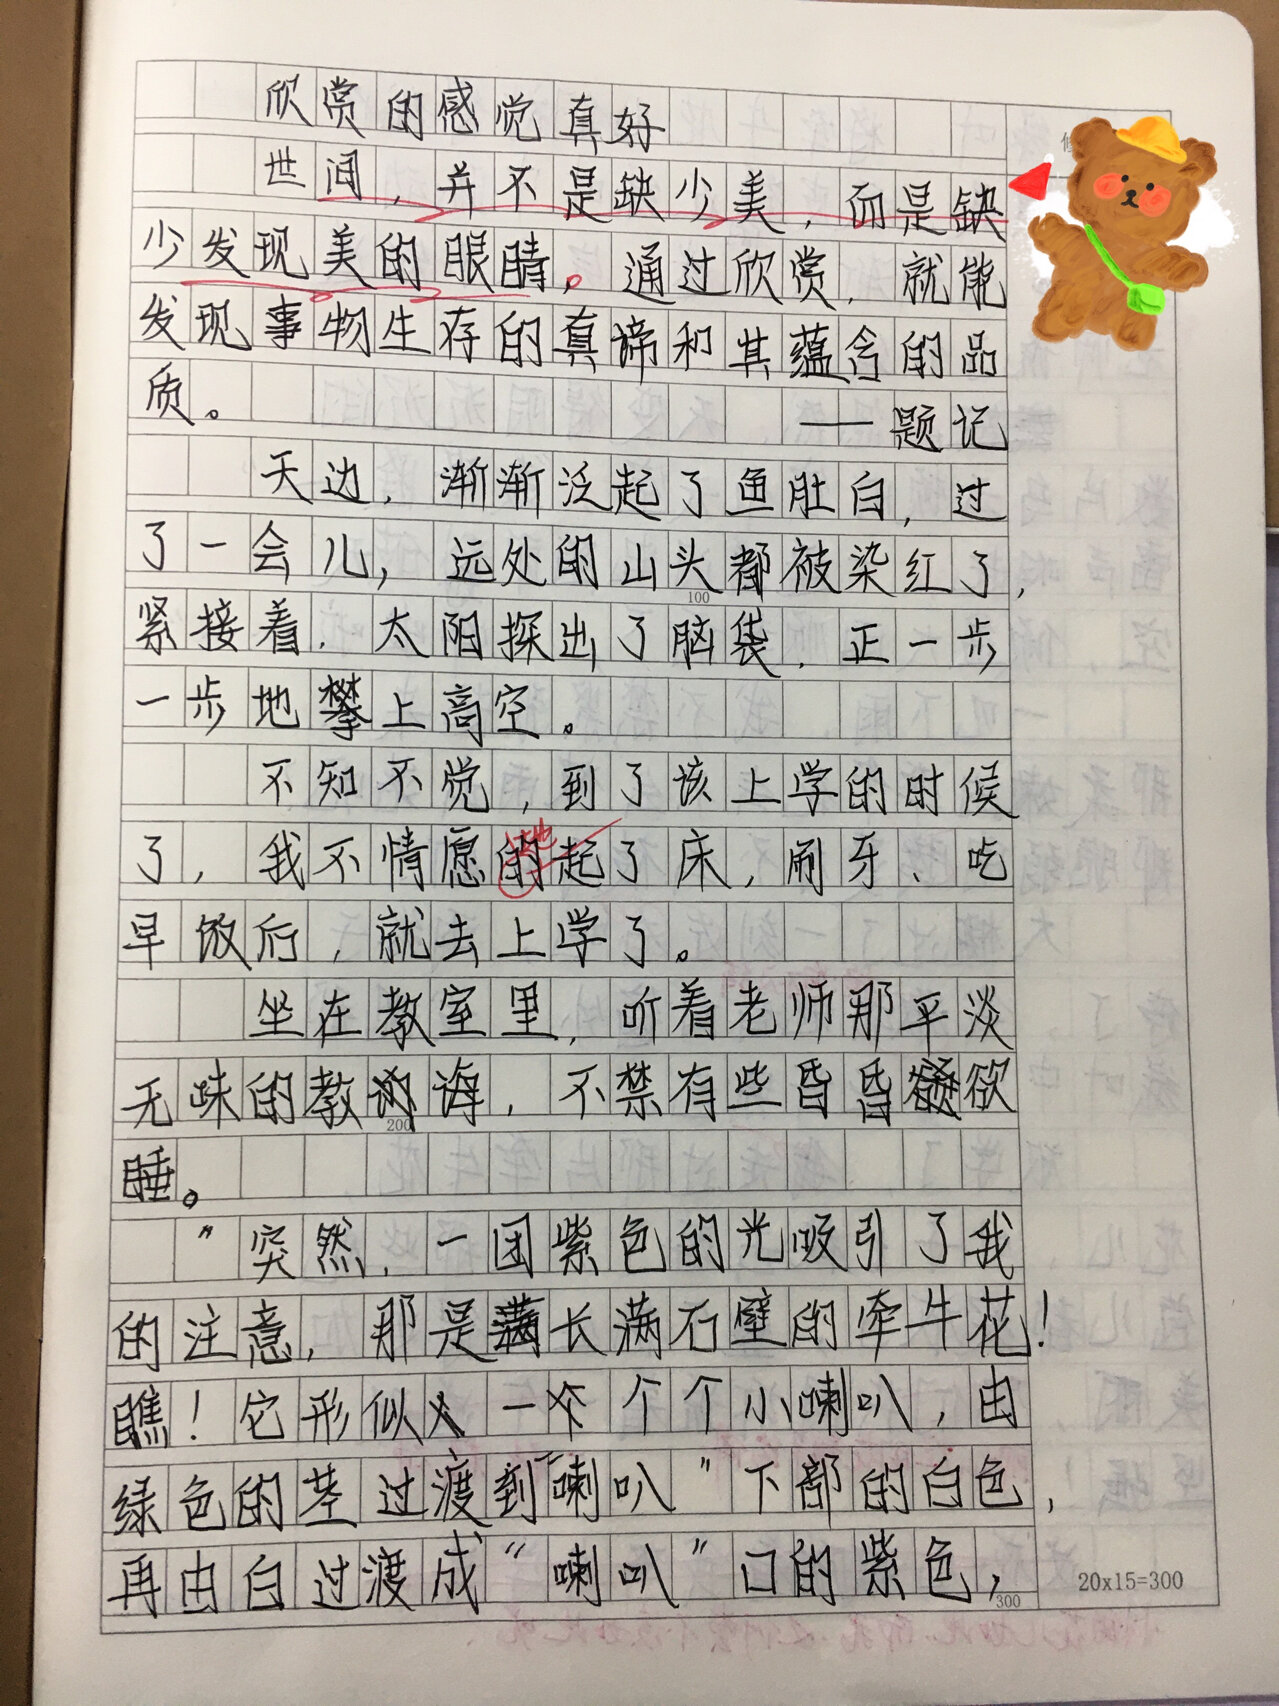 欣赏的感觉真好
世间，并不是缺少美，而是缺
少发现美的眼睛。通过欣赏，就能
发现事物生存的真谛和其蕴含的品
质。 ——题记
天边，渐渐泛起了鱼肚白，过
了一会儿，远处的山头都被染红了，
100
紧接着，太阳探出了脑袋，正一步
一步地攀上高空。
不知不觉，到了该上学的时候
地
了，我不情愿的起了床，刷牙、吃
早饭后，就去上学了。
坐在教室里，听着老师那平淡
无味的教诲，不禁有些昏昏欲
200
睡。
"突然，一团紫色的光吸引了我
的注意，那是长满石壁的牵牛花！
瞧！它形似一个个小喇叭，由
绿色的茎过渡到"喇叭"下部的白色，
再由白过渡成"喇叭"口的紫色，
300
20x15=300